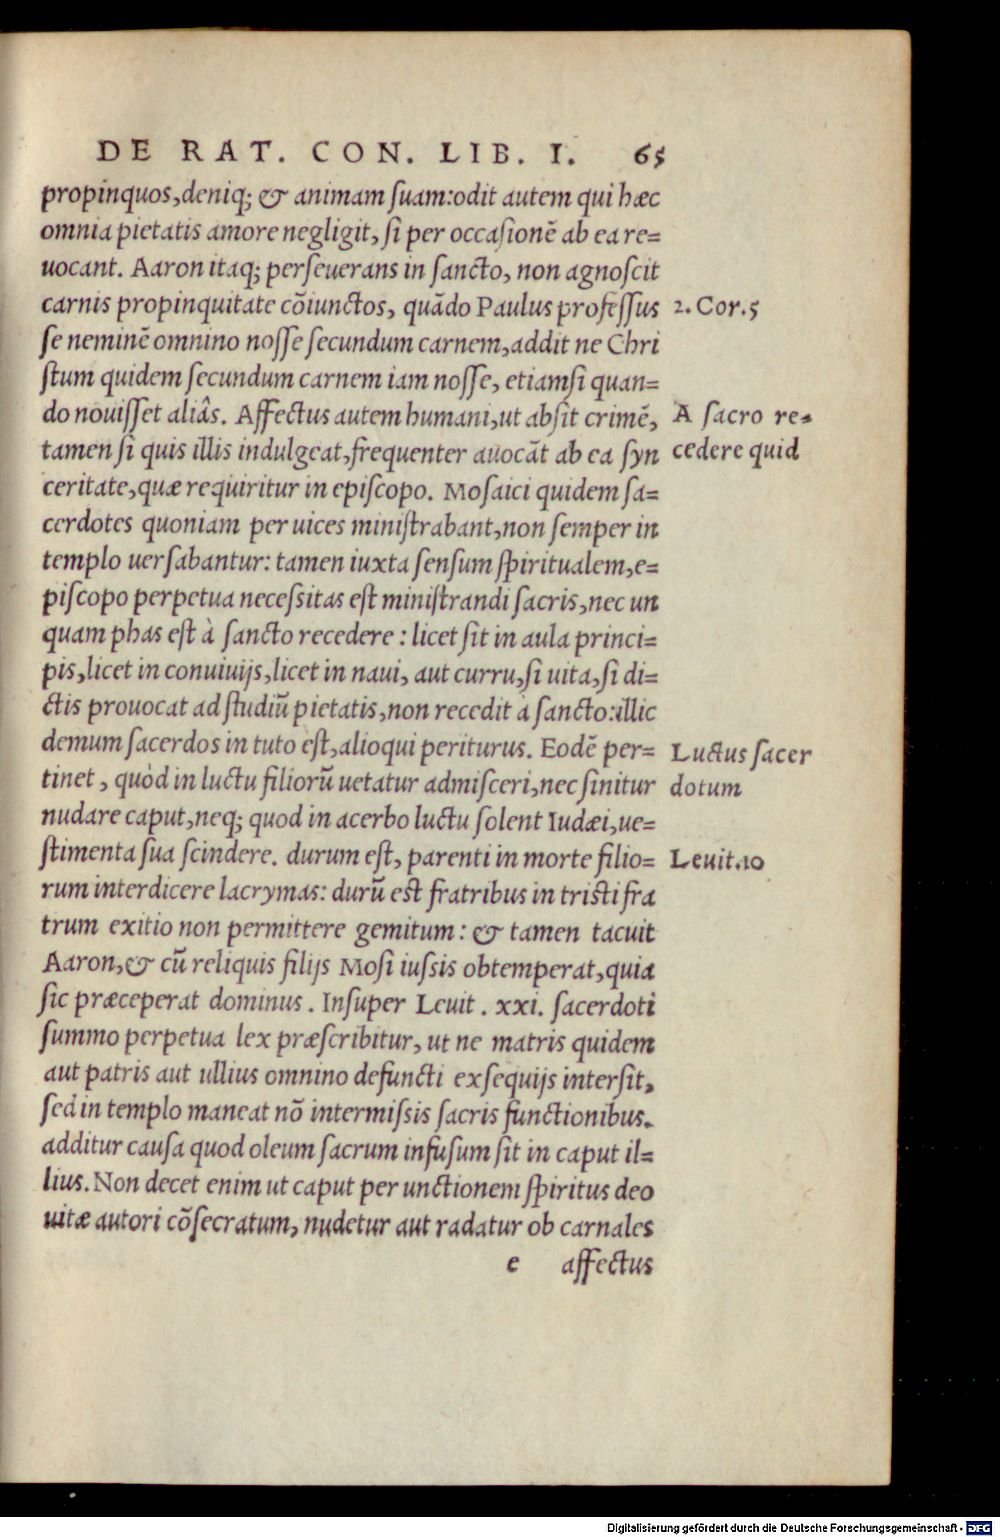 DE RAT. CON. LIB. I. 65
propinquos, deniq; & animam suam: odit autem qui hæc
omnia pietatis amore negligit, si per occasionē ab ea re=
uocant. Aaron itaq; perseuerans in sancto, non agnoscit
carnis propinquitate cōiunctos, quādo Paulus professus
2. Cor. 5
se neminē omnino nosse secundum carnem, addit ne Chri
stum quidem secundum carnem iam nosse, etiamsi quan=
do nouisset aliâs. Affectus autem humani, ut absit crimē,
A sacro re=
tamen si quis illis indulgeat, frequenter auocāt ab ea syn
cedere quid
ceritate, quæ requiritur in episcopo. Mosaici quidem sa=
cerdotes quoniam per uices ministrabant, non semper in
templo uersabantur: tamen iuxta sensum spiritualem, e=
piscopo perpetua necessitas est ministrandi sacris, nec un
quam phas est à sancto recedere: licet sit in aula princi=
pis, licet in conuiuijs, licet in naui, aut curru, si uita, si di=
ctis prouocat ad studiū pietatis, non recedit à sancto: illic
demum sacerdos in tuto est, alioqui periturus. Eodē per=
Luctus sacer
tinet, quòd in luctu filiorū uetatur admisceri, nec sinitur
dotum
nudare caput, neq; quod in acerbo luctu solent Iudæi, ue=
stimenta sua scindere. durum est, parenti in morte filio=
Leuit. 10
rum interdicere lacrymas: durū est fratribus in tristi fra
trum exitio non permittere gemitum: & tamen tacuit
Aaron, & cū reliquis filijs Mosi iussis obtemperat, quia
sic præceperat dominus. Insuper Leuit. xxi. sacerdoti
summo perpetua lex præscribitur, ut ne matris quidem
aut patris aut ullius omnino defuncti exsequijs intersit,
sed in templo maneat nō intermissis sacris functionibus.
additur causa quod oleum sacrum infusum sit in caput il=
lius. Non decet enim ut caput per unctionem spiritus deo
uitæ autori cōsecratum, nudetur aut radatur ob carnales
e affectus
Digitalisierung gefördert durch die Deutsche Forschungsgemeinschaft - DFG